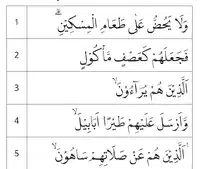 1 وَلَا يَحُضُّ عَلَىٰ طَعَامِ الْمِسْكِيْنِۗ
2 فَجَعَلَهُمْ كَعَصْفٍ مَّأْكُوْلٍ
3 الَّذِيْنَ هُمْ يُرَاۤءُوْنَۙ
4 وَّاَرْسَلَ عَلَيْهِمْ طَيْرًا اَبَابِيْلَۙ
5 الَّذِيْنَ هُمْ عَنْ صَلَاتِهِمْ سَاهُوْنَۙ